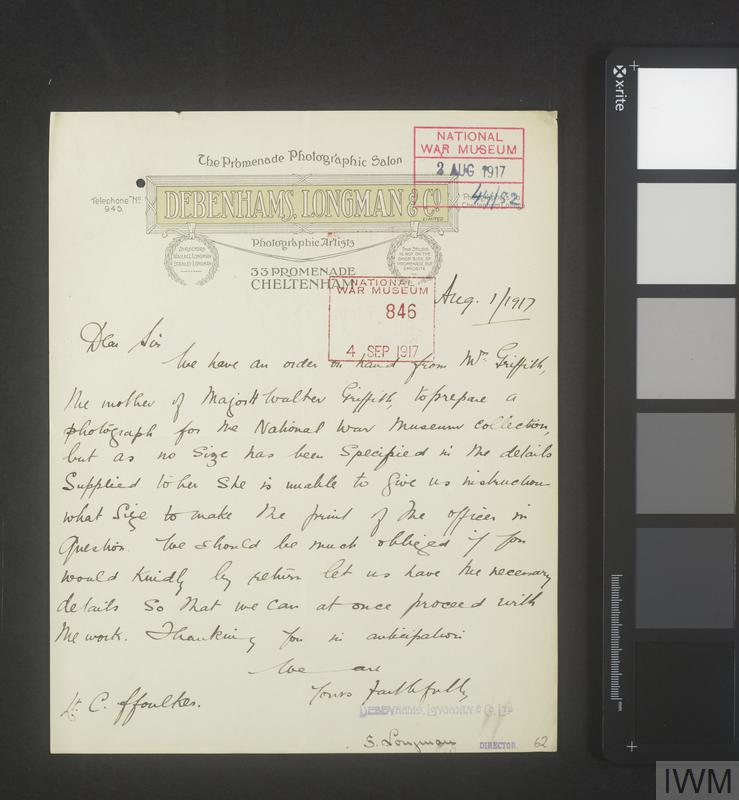 The Promenade Photographic Salon
NATIONAL
WAR MUSEUM
2 AUG 1917
44/52
Telephone Nº
945.
DEBENHAMS, LONGMAN & Co
LIMITED
Photographic Artists
DIRECTORS
WALLACE LONGMAN
STANLEY LONGMAN
THIS STUDIO
IS NOT ON THE
SHOP SIDE OF
PROMENADE BUT
OPPOSITE
33 PROMENADE
CHELTENHAM
NATIONAL
WAR MUSEUM
846
4 SEP 1917
Aug. 1/1917
Dear Sir
We have an order on hand from Mrs Griffith,
the mother of Major H Walter Griffith, to prepare a
photograph for the National War Museum collection,
but as no size has been specified in the details
supplied to her she is unable to give us instruction
what size to make the print of the officer in
question. We should be much obliged if you
would kindly by return let us have the necessary
details so that we can at once proceed with
the work. Thanking you in anticipation
We are
Yours faithfully
DEBENHAMS, LONGMAN & Co. LTD
Lt C. ffoulkes.
S. Longman
DIRECTOR.
62
x-rite
mm
IWM